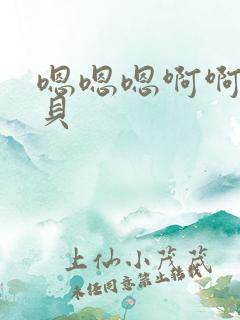 嗯嗯嗯啊啊
頁
上仙小茂茂
未经同意禁止转载